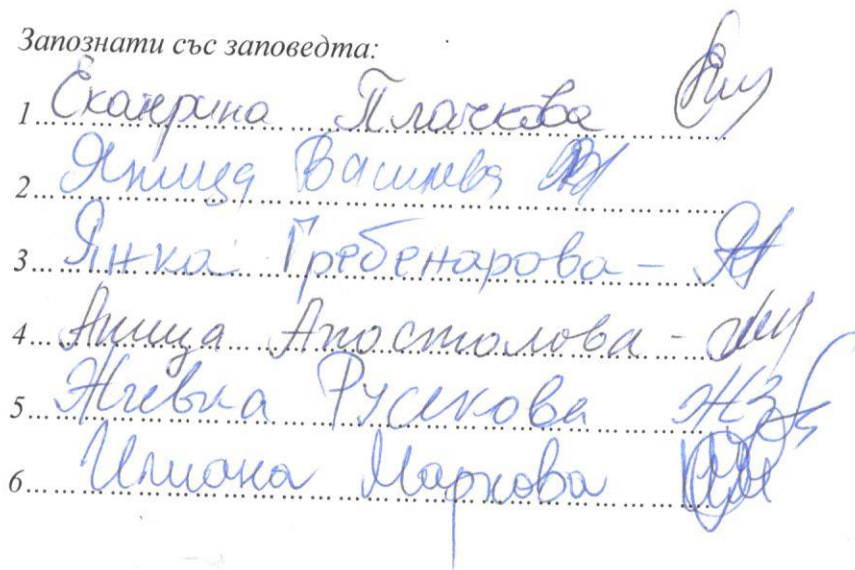 Запознати със заповедта:
1 Екатерина Плачкова
2 Яница Василева
3 Янка Гребенарова -
4 Аница Апостолова -
5 Живка Русекова
6 Илиана Маркова